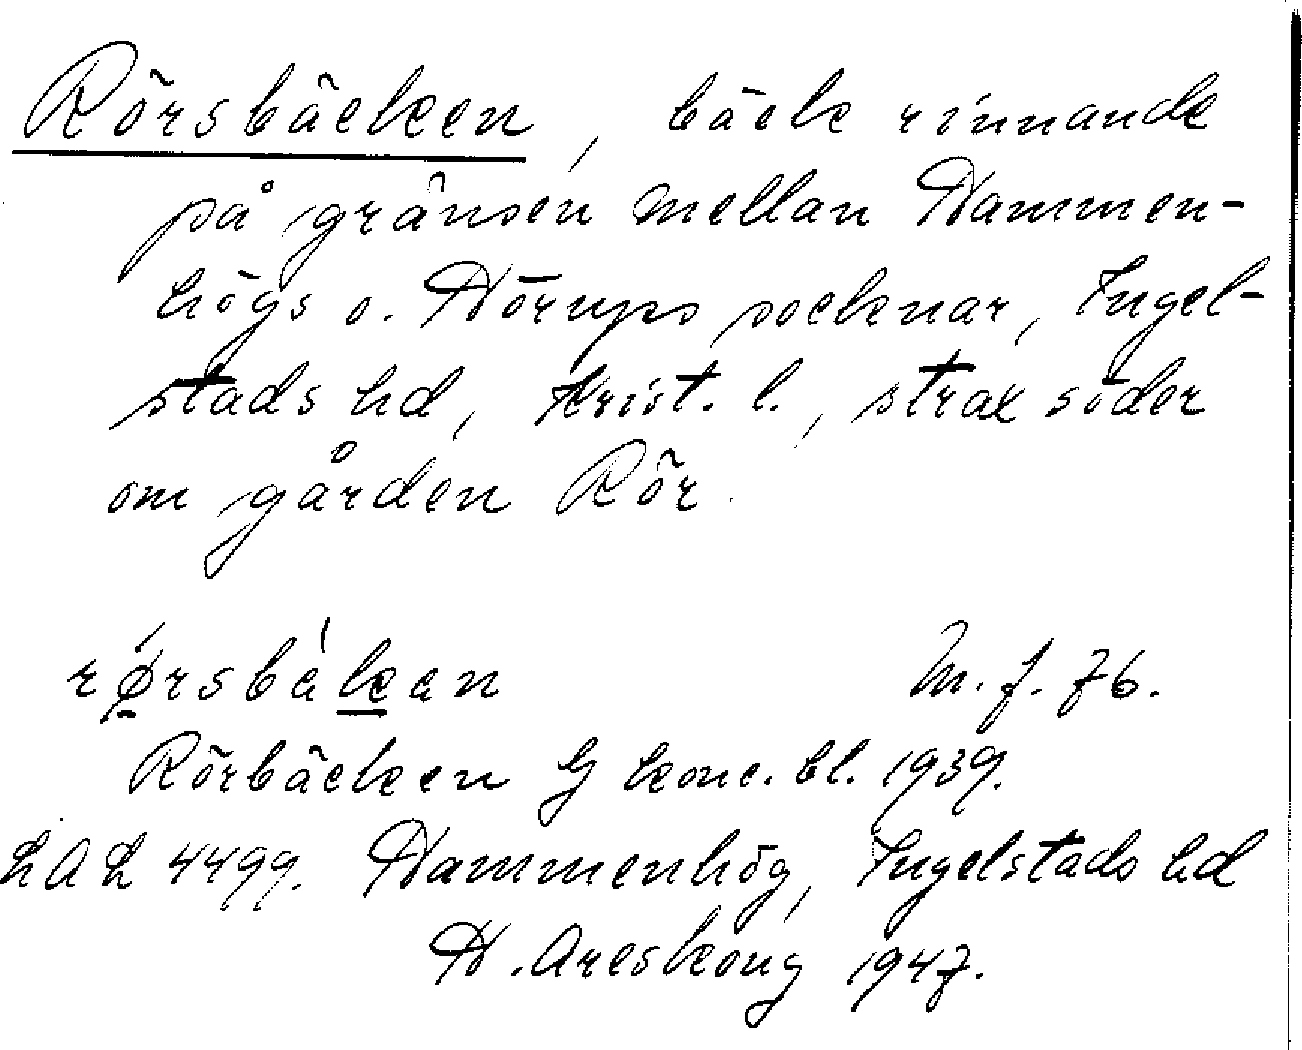 Rörsbäcken, bäck rinnande
på gränsen mellan Hammen-
högs o. Hörups socknar, Ingel-
stads hd, Krist. l., strax söder
om gården Rör.
rǿ̱rsbȧḵan M. f. 76.
Rörbäcken G konc. bl. 1939.
LAL 4499. Hammenhög, Ingelstads hd
H. Areskoug 1947.